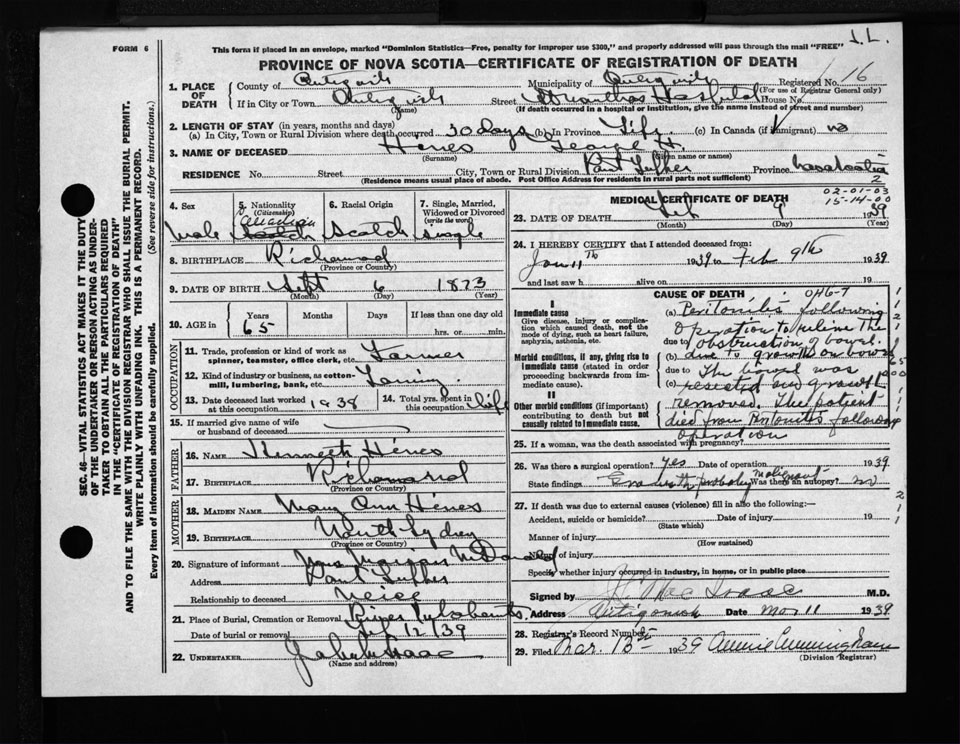 FORM 6
This form if placed in an envelope, marked "Dominion Statistics—Free, penalty for improper use $300," and properly addressed will pass through the mail "FREE"
PROVINCE OF NOVA SCOTIA—CERTIFICATE OF REGISTRATION OF DEATH
1. PLACE OF DEATH
County of Antigonish Municipality of Antigonish Registered No. 16
(For use of Registrar General only)
If in City or Town Antigonish Street St Marthas Hospital House No.
(Name) (If death occurred in a hospital or institution, give the name instead of street and number)
2. LENGTH OF STAY (in years, months and days)
(a) In City, Town or Rural Division where death occurred 30 days (b) in Province Life (c) In Canada (if immigrant) no
3. NAME OF DECEASED Hines George H.
(Surname) (Given name or names)
RESIDENCE No. Street City, Town or Rural Division Province Nova Scotia
(Residence means usual place of abode. Post Office Address for residents in rural parts not sufficient)
2
02-01-03
15-14-00
4. Sex Male
5. Nationality (Citizenship) Canadian
6. Racial Origin Scotch
7. Single, Married, Widowed or Divorced (write the word) Single
8. BIRTHPLACE Richmond
(Province or Country)
9. DATE OF BIRTH Sept 6 1873
(Month) (Day) (Year)
10. AGE in Years Months Days If less than one day old
65 hrs. or min.
OCCUPATION
11. Trade, profession or kind of work as spinner, teamster, office clerk, etc. Farmer
12. Kind of industry or business, as cotton-mill, lumbering, bank, etc. Farming
13. Date deceased last worked at this occupation 1938
14. Total yrs. spent in this occupation life
15. If married give name of wife or husband of deceased
FATHER
16. NAME Kenneth Hines
17. BIRTHPLACE Richmond
(Province or Country)
MOTHER
18. MAIDEN NAME Mary Ann Hines
19. BIRTHPLACE North Sydney
(Province or Country)
20. Signature of informant
Address
Relationship to deceased Neice
21. Place of Burial, Cremation or Removal River
Date of burial or removal Feb 12/39
22. UNDERTAKER
(Name and address)
MEDICAL CERTIFICATE OF DEATH
23. DATE OF DEATH Feb 9 1939
(Month) (Day) (Year)
24. I HEREBY CERTIFY that I attended deceased from:
Jan 11th 1939 to Feb 9th 1939
and last saw h alive on 19
CAUSE OF DEATH
I
Immediate cause
Give disease, injury or complication which caused death, not the mode of dying, such as heart failure, asphyxia, asthenia, etc.
Morbid conditions, if any, giving rise to immediate cause (stated in order proceeding backwards from immediate cause).
II
Other morbid conditions (if important) contributing to death but not causally related to immediate cause.
(a) Peritonitis following
Operation to relieve the
due to obstruction of bowel
(b) due to growth on bowel
due to The bowel was
(c) resected and growth
removed. The patient
died from Peritonitis following
operation
25. If a woman, was the death associated with pregnancy?
26. Was there a surgical operation? Yes Date of operation 1939
State findings Growth probably malignant Was there an autopsy? no
27. If death was due to external causes (violence) fill in also the following:
Accident, suicide or homicide? Date of injury 19
(State which)
Manner of injury
(How sustained)
Nature of injury
Specify whether injury occurred in industry, in home, or in public place
Signed by J. MacIsaac M.D.
Address Antigonish Date Mar 11 1939
28. Registrar's Record Number
29. Filed Mar. 15th 1939 Annie Cunningham
(Division Registrar)
SEC. 46—VITAL STATISTICS ACT MAKES IT THE DUTY OF THE UNDERTAKER OR PERSON ACTING AS UNDERTAKER TO OBTAIN ALL THE PARTICULARS REQUIRED IN THE "CERTIFICATE OF REGISTRATION OF DEATH" AND TO FILE THE SAME WITH THE DIVISION REGISTRAR WHO SHALL ISSUE THE BURIAL PERMIT.
WRITE PLAINLY WITH UNFADING INK. THIS IS A PERMANENT RECORD.
Every item of information should be carefully supplied. (See reverse side for instructions.)